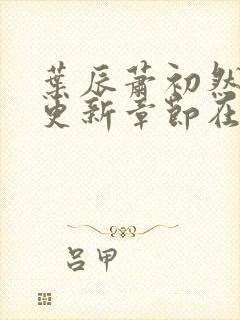 葉辰蕭初然
更新章節在
呂甲